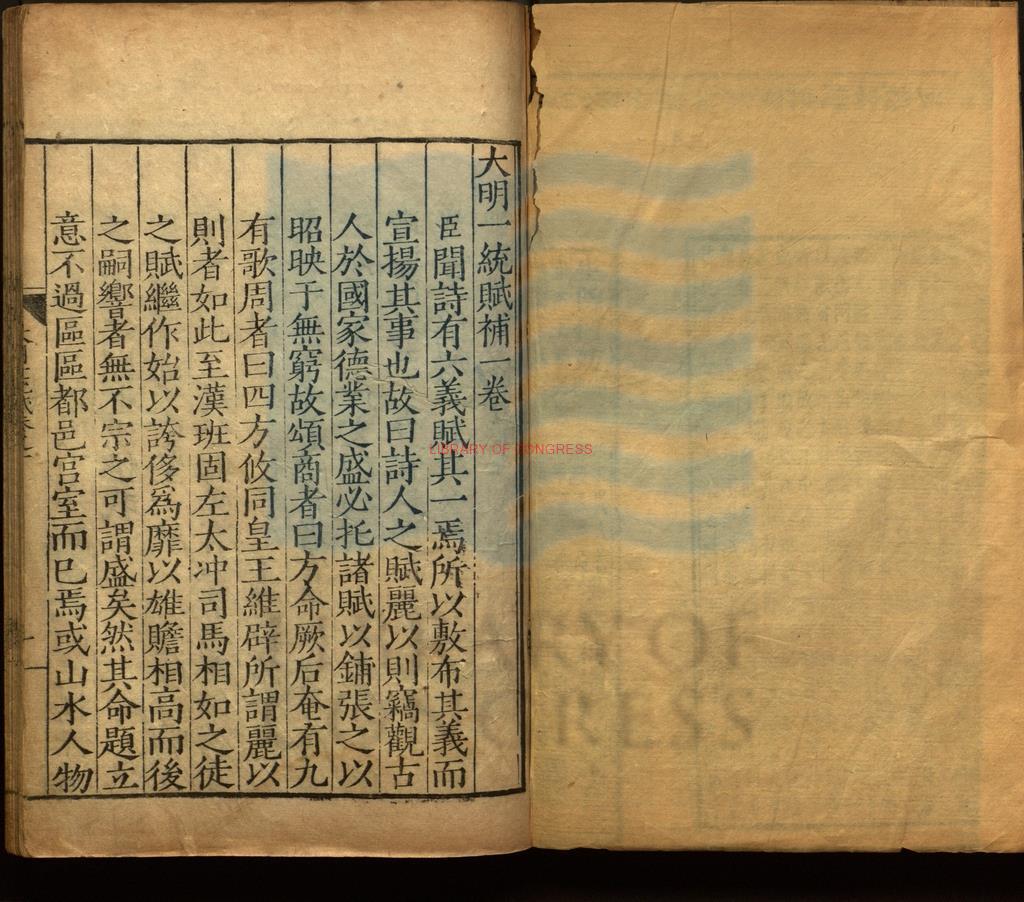 大明一統賦補一卷
臣聞詩有六義賦其一焉所以敷布其義而
宣揚其事也故曰詩人之賦麗以則竊觀古
人於國家德業之盛必托諸賦以鋪張之以
昭映于無窮故頌商者曰方命厥后奄有九
有歌周者曰四方攸同皇王維辟所謂麗以
則者如此至漢班固左太冲司馬相如之徒
之賦繼作始以誇侈爲靡以雄贍相高而後
之嗣響者無不宗之可謂盛矣然其命題立
意不過區區都邑宫室而已焉或山水人物
LIBRARY OF CONGRESS